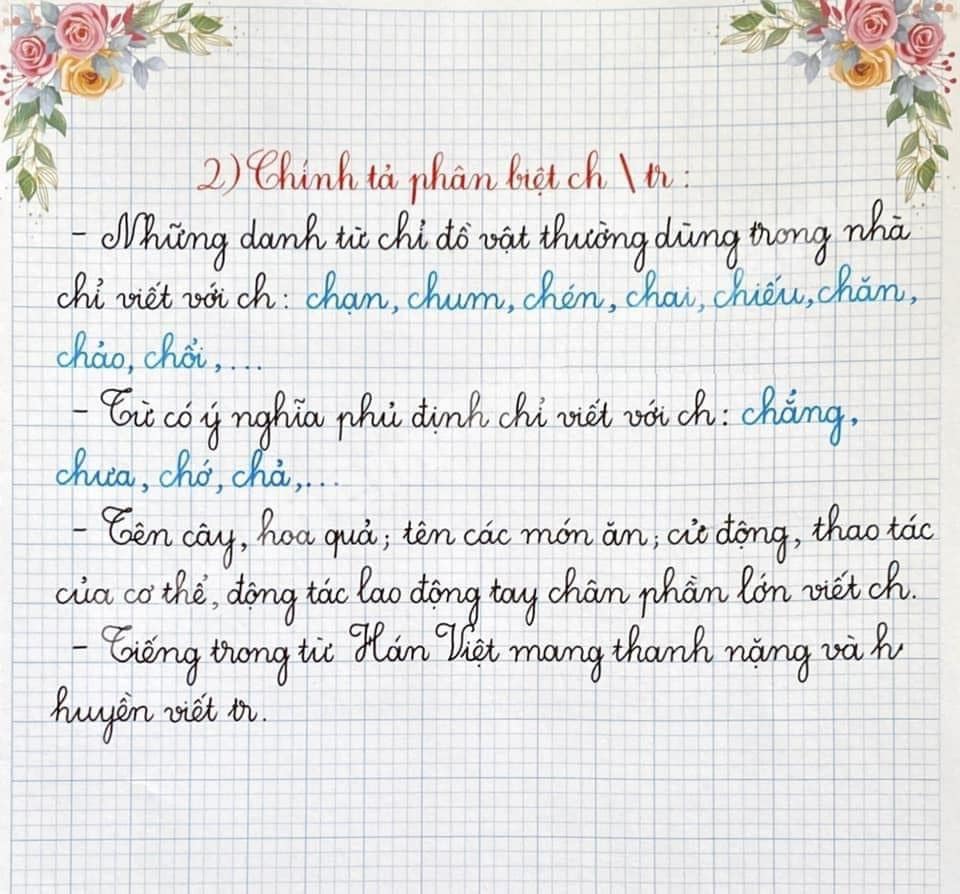 2) Chính tả phân biệt ch \ tr :
- Những danh từ chỉ đồ vật thường dùng trong nhà
chỉ viết với ch: chạn, chum, chén, chai, chiếu, chăn,
chảo, chổi,...
- Từ có ý nghĩa phủ định chỉ viết với ch: chẳng,
chưa, chớ, chả,...
- Tên cây, hoa quả; tên các món ăn; cử động, thao tác
của cơ thể, động tác lao động tay chân phần lớn viết ch.
- Tiếng trong từ Hán Việt mang thanh nặng và h
huyền viết tr.